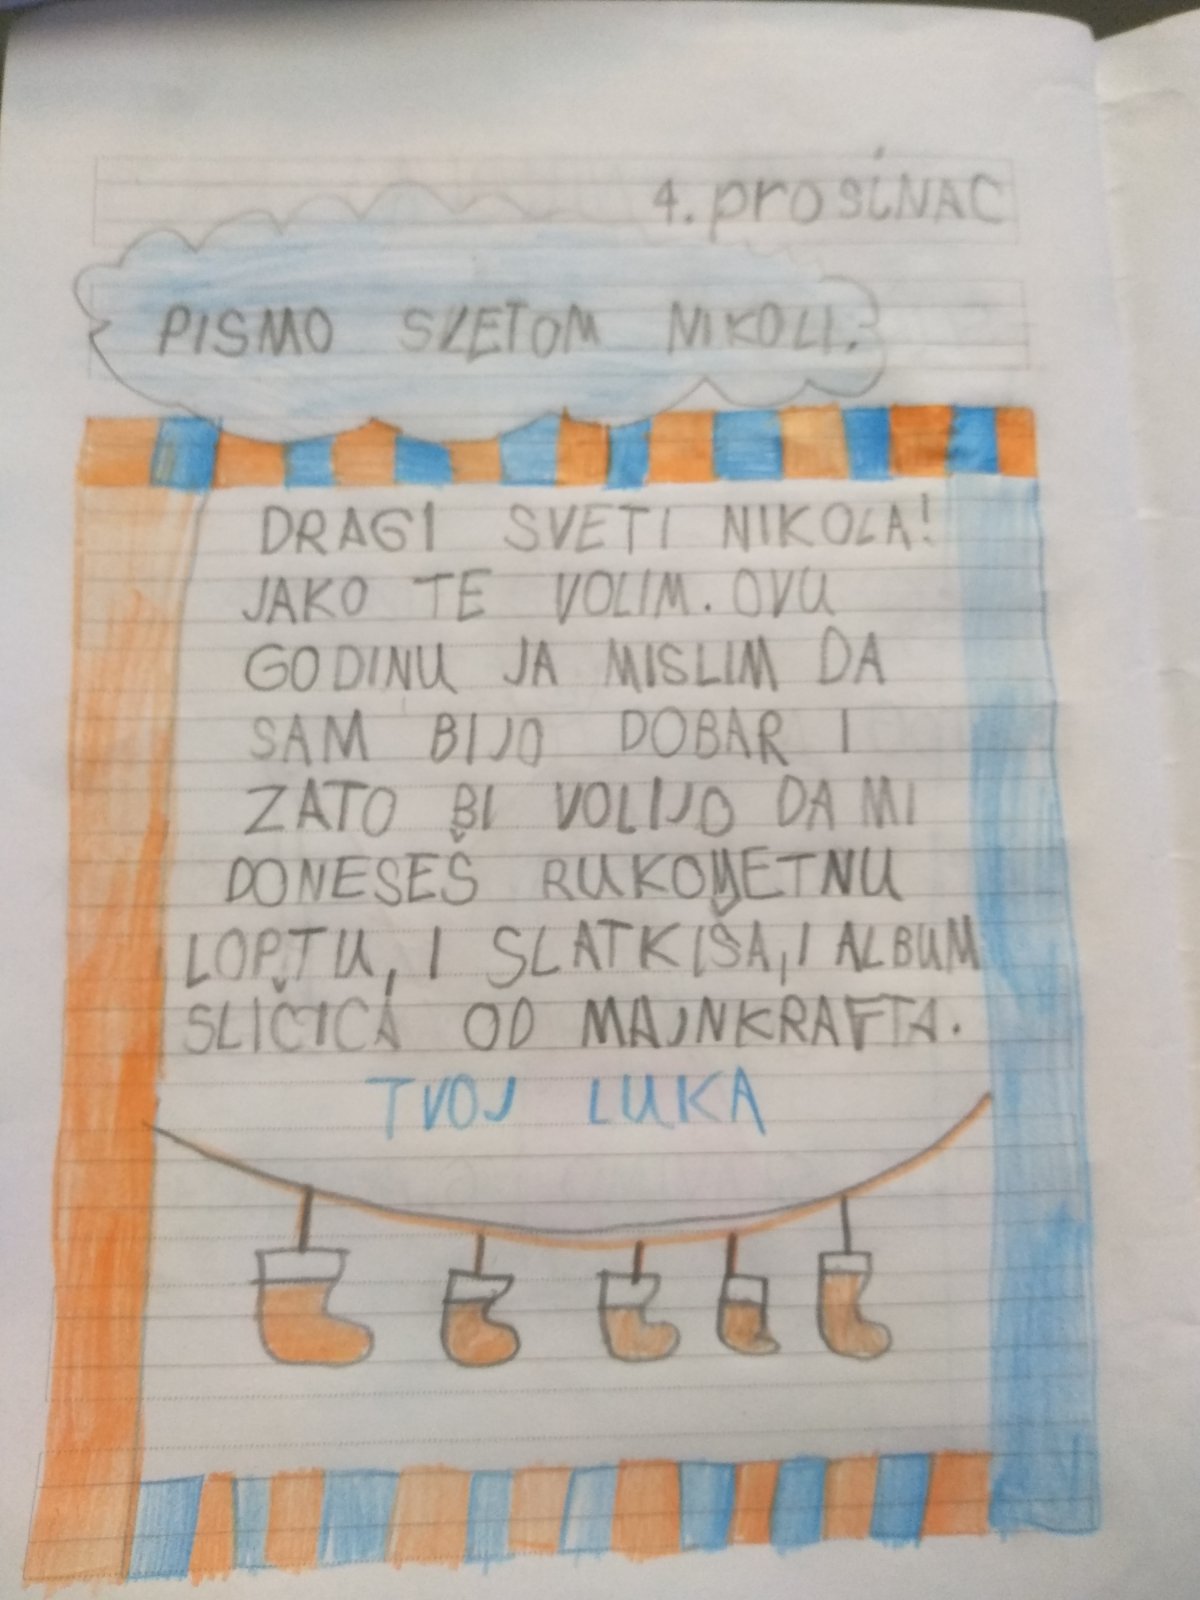 4. prosinac
PISMO SVETOM NIKOLI.
DRAGI SVETI NIKOLA!
JAKO TE VOLIM. OVU
GODINU JA MISLIM DA
SAM BIJO DOBAR I
ZATO BI VOLIJO DA MI
DONESEŠ RUKOMETNU
LOPTU, I SLATKIŠA, I ALBUM
SLIČICA OD MAJNKRAFTA.
TVOJ LUKA